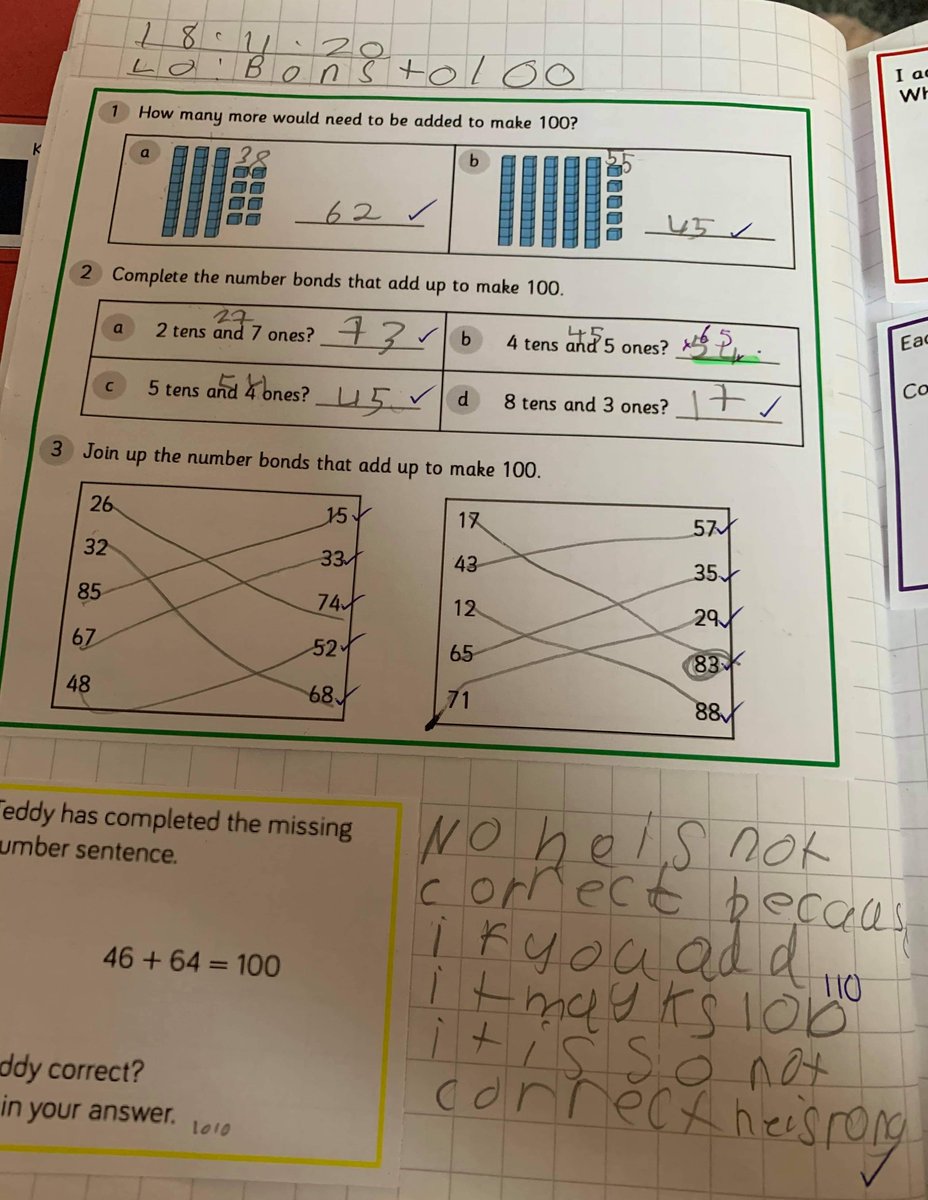 18.4.20
Lo: Bons to 100
1 How many more would need to be added to make 100?
a 38 62 ✓
b 55 45 ✓
2 Complete the number bonds that add up to make 100.
27
a 2 tens and 7 ones? 73 ✓
45
b 4 tens and 5 ones? 54 65
54
c 5 tens and 4 ones? 45 ✓
d 8 tens and 3 ones? 17 ✓
3 Join up the number bonds that add up to make 100.
26 15 ✓
32 33 ✓
85 74 ✓
67 52 ✓
48 68 ✓
17 57 ✓
43 35 ✓
12 29 ✓
65 83 ✓
71 88 ✓
Teddy has completed the missing
umber sentence.
46 + 64 = 100
ddy correct?
in your answer.
1010
No he is not
correct becaus
if you add
it mayks 100 110
it is so not
correct he is rong
✓
I a
Wh
Eac
Co
K